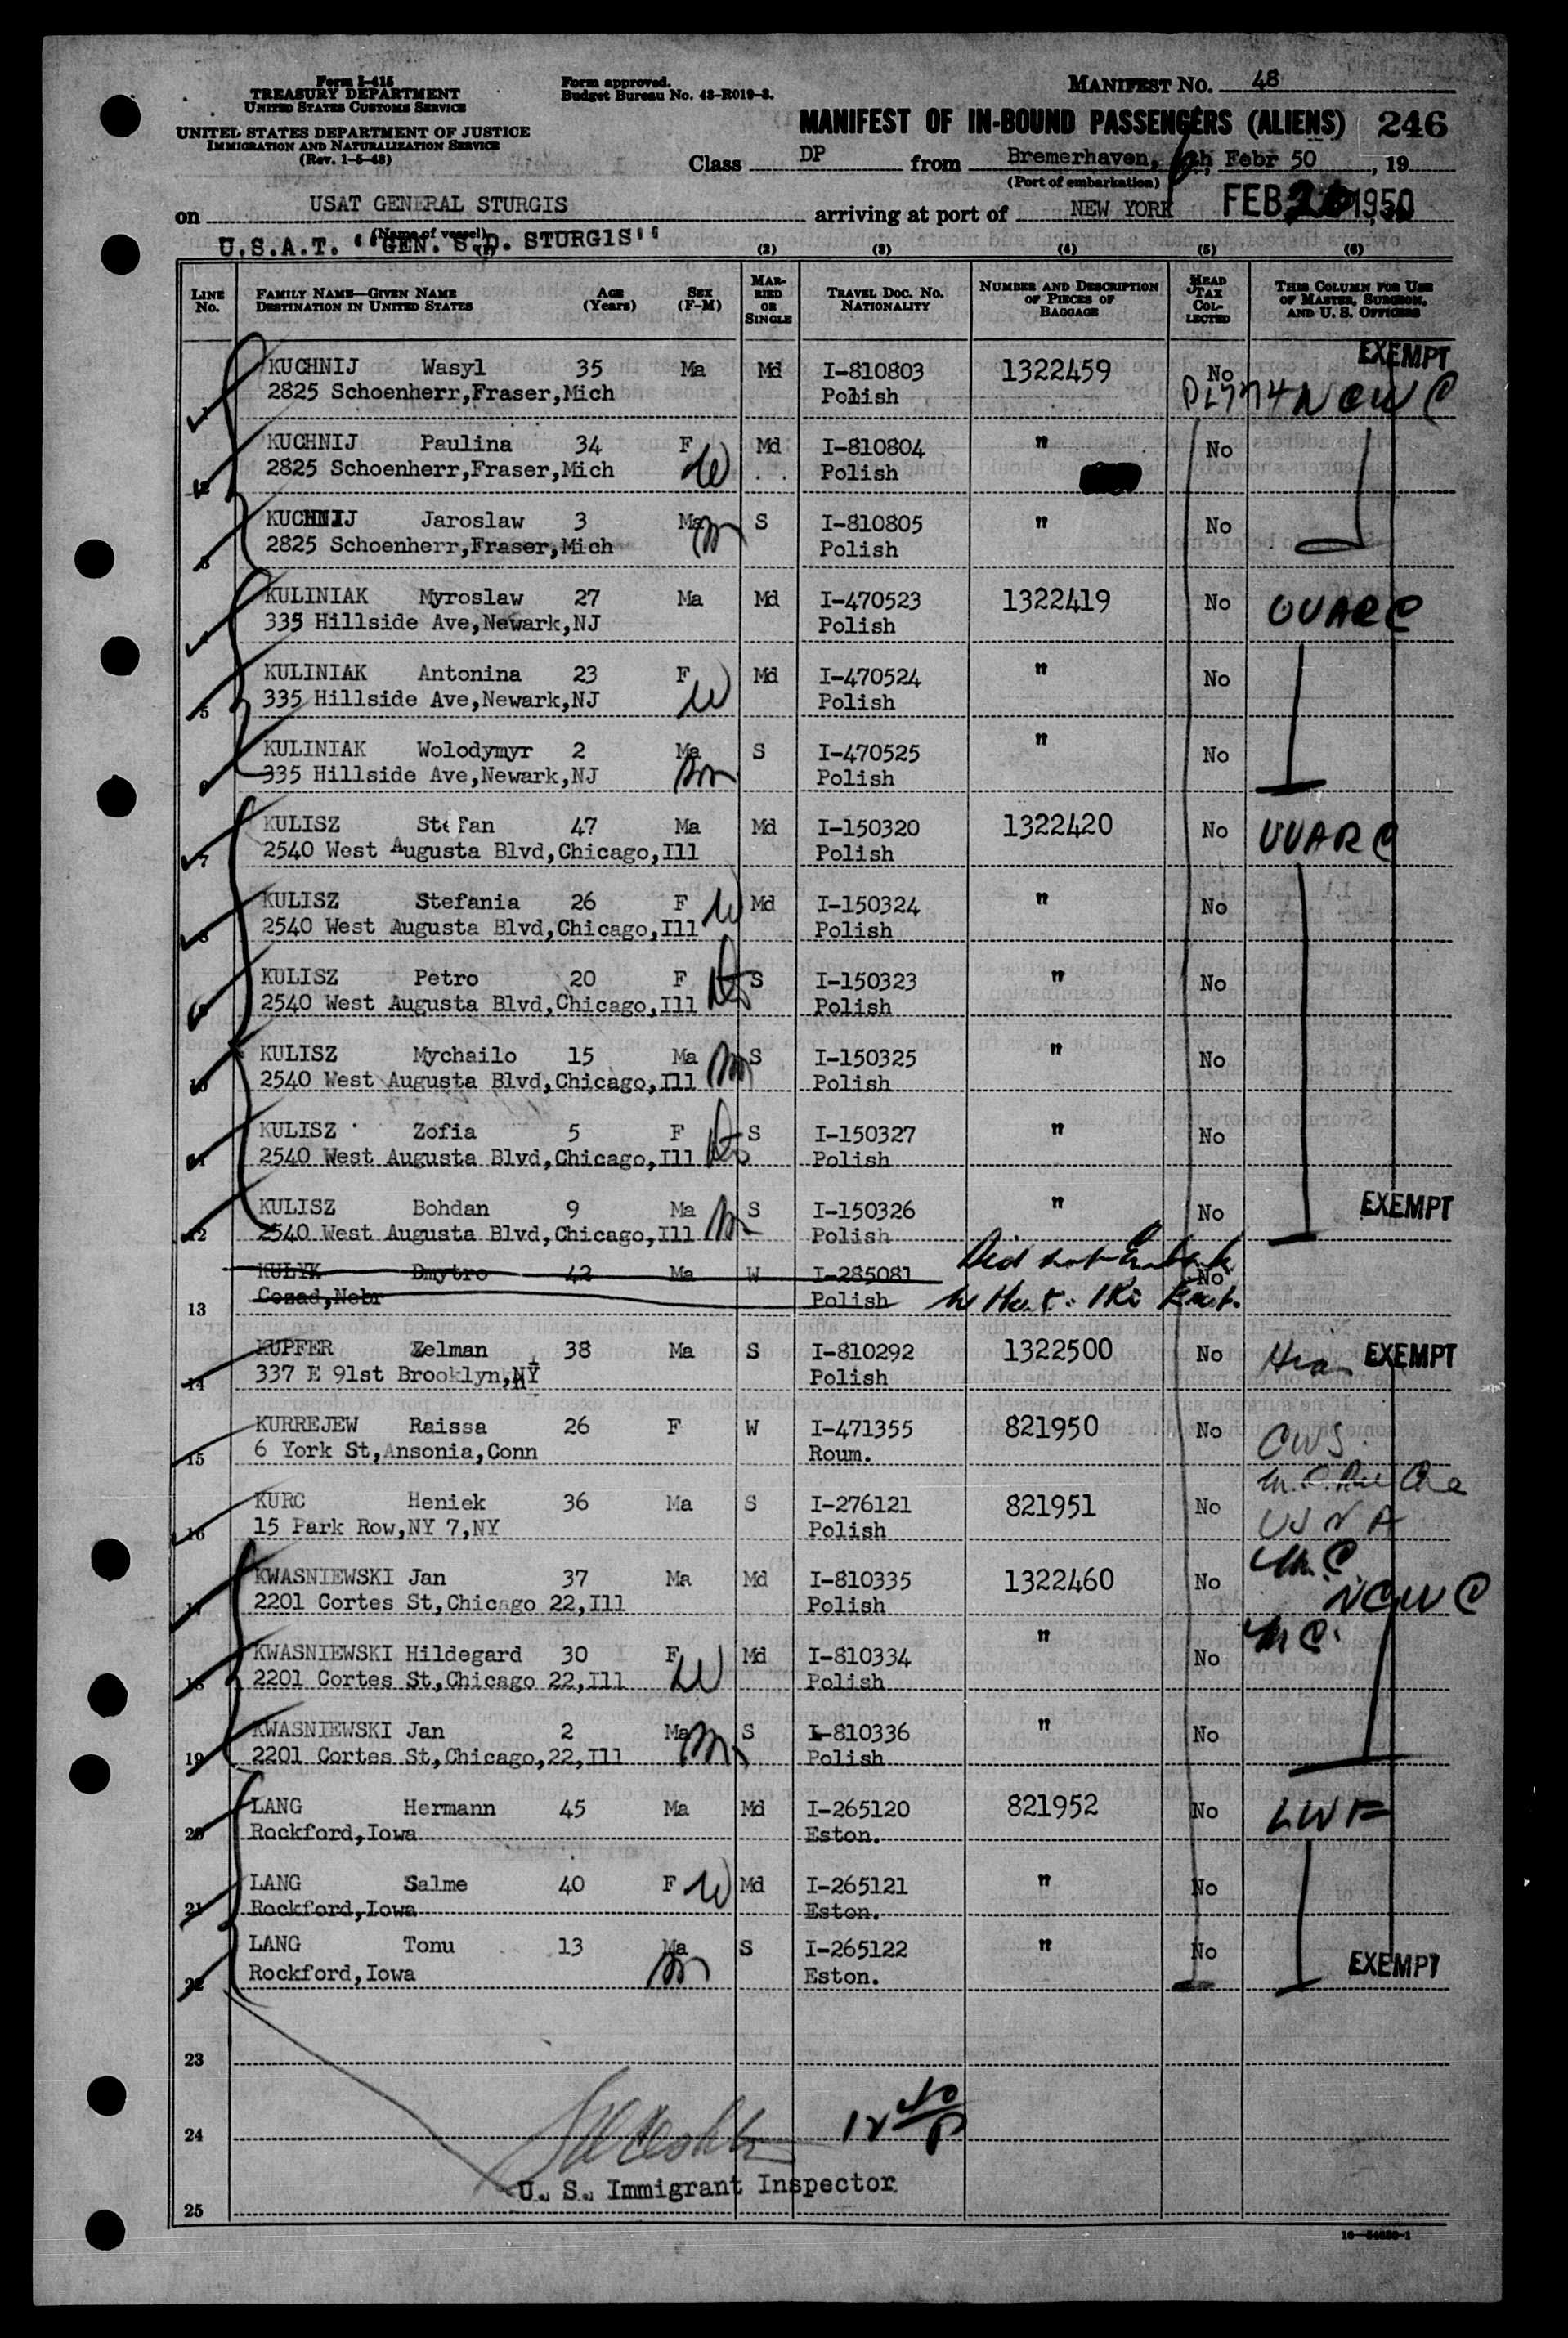 Form I-415
TREASURY DEPARTMENT
UNITED STATES CUSTOMS SERVICE
UNITED STATES DEPARTMENT OF JUSTICE
IMMIGRATION AND NATURALIZATION SERVICE
(Rev. 1-5-48)
Form approved.
Budget Bureau No. 43-R019-3.
MANIFEST NO. 48
MANIFEST OF IN-BOUND PASSENGERS (ALIENS) 246
Class DP from Bremerhaven, Febr 50, 19
(Port of embarkation)
on USAT GENERAL STURGIS arriving at port of NEW YORK FEB 1950
(Name of vessel)
U.S.A.T. "GEN. S.D. STURGIS"
(1) (2) (3) (4) (5) (6)
LINE No. FAMILY NAME—GIVEN NAME DESTINATION IN UNITED STATES AGE (Years) SEX (F-M) MARRIED OR SINGLE TRAVEL DOC. NO. NATIONALITY NUMBER AND DESCRIPTION OF PIECES OF BAGGAGE HEAD TAX COLLECTED THIS COLUMN FOR USE OF MASTER, SURGEON, AND U. S. OFFICERS
EXEMPT
1 KUCHNIJ Wasyl 35 Ma Md I-810803 1322459 No
2825 Schoenherr,Fraser,Mich Polish NCWC
2 KUCHNIJ Paulina 34 F Md I-810804 " No
2825 Schoenherr,Fraser,Mich W Polish
3 KUCHNIJ Jaroslaw 3 Ma S I-810805 " No
2825 Schoenherr,Fraser,Mich Polish
4 KULINIAK Myroslaw 27 Ma Md I-470523 1322419 No UUARC
335 Hillside Ave,Newark,NJ Polish
5 KULINIAK Antonina 23 F Md I-470524 " No
335 Hillside Ave,Newark,NJ W Polish
6 KULINIAK Wolodymyr 2 Ma S I-470525 " No
335 Hillside Ave,Newark,NJ Polish
7 KULISZ Stefan 47 Ma Md I-150320 1322420 No UUARC
2540 West Augusta Blvd,Chicago,Ill Polish
8 KULISZ Stefania 26 F W Md I-150324 " No
2540 West Augusta Blvd,Chicago,Ill Polish
9 KULISZ Petro 20 F S I-150323 " No
2540 West Augusta Blvd,Chicago,Ill Polish
10 KULISZ Mychailo 15 Ma S I-150325 " No
2540 West Augusta Blvd,Chicago,Ill Polish
11 KULISZ Zofia 5 F S I-150327 " No
2540 West Augusta Blvd,Chicago,Ill Polish
12 KULISZ Bohdan 9 Ma S I-150326 " No EXEMPT
2540 West Augusta Blvd,Chicago,Ill Polish
13 KULYK Dmytro 42 Ma W I-285081 Did not Embark No
Cozad,Nebr Polish
14 KUPFER Zelman 38 Ma S I-810292 1322500 No EXEMPT
337 E 91st Brooklyn,NY Polish
15 KURREJEW Raissa 26 F W I-471355 821950 No CWS
6 York St,Ansonia,Conn Roum.
16 KURC Heniek 36 Ma S I-276121 821951 No USNA
15 Park Row,NY 7,NY Polish
17 KWASNIEWSKI Jan 37 Ma Md I-810335 1322460 No
2201 Cortes St,Chicago 22,Ill Polish NCWC
18 KWASNIEWSKI Hildegard 30 F Md I-810334 " No
2201 Cortes St,Chicago 22,Ill W Polish
19 KWASNIEWSKI Jan 2 Ma S I-810336 " No
2201 Cortes St,Chicago,22,Ill Polish
20 LANG Hermann 45 Ma Md I-265120 821952 No LWF
Rockford,Iowa Eston.
21 LANG Salme 40 F W Md I-265121 " No
Rockford,Iowa Eston.
22 LANG Tonu 13 Ma S I-265122 " No EXEMPT
Rockford,Iowa Eston.
23
24
U. S. Immigrant Inspector
25